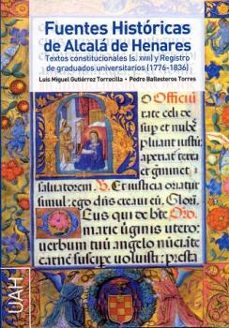 Fuentes Históricas
de Alcalá de Henares
Textos constitucionales (s. XVIII) y Registro
de graduados universitarios (1776-1836)
Luis Miguel Gutiérrez Torrecilla • Pedro Ballesteros Torres
Officiū
rate celi de su
per et nubel
pluant iustu
aperiatur terra
et germinet
saluatorem. V. Et iustitia oriatur
simul: ego dñs creaui eum. Glori
Deus qui de bte Oro.
marie uirginis utero:
uerbum tuū angelo nūciāte
carnē suscipe uoluisti: presta
UAH